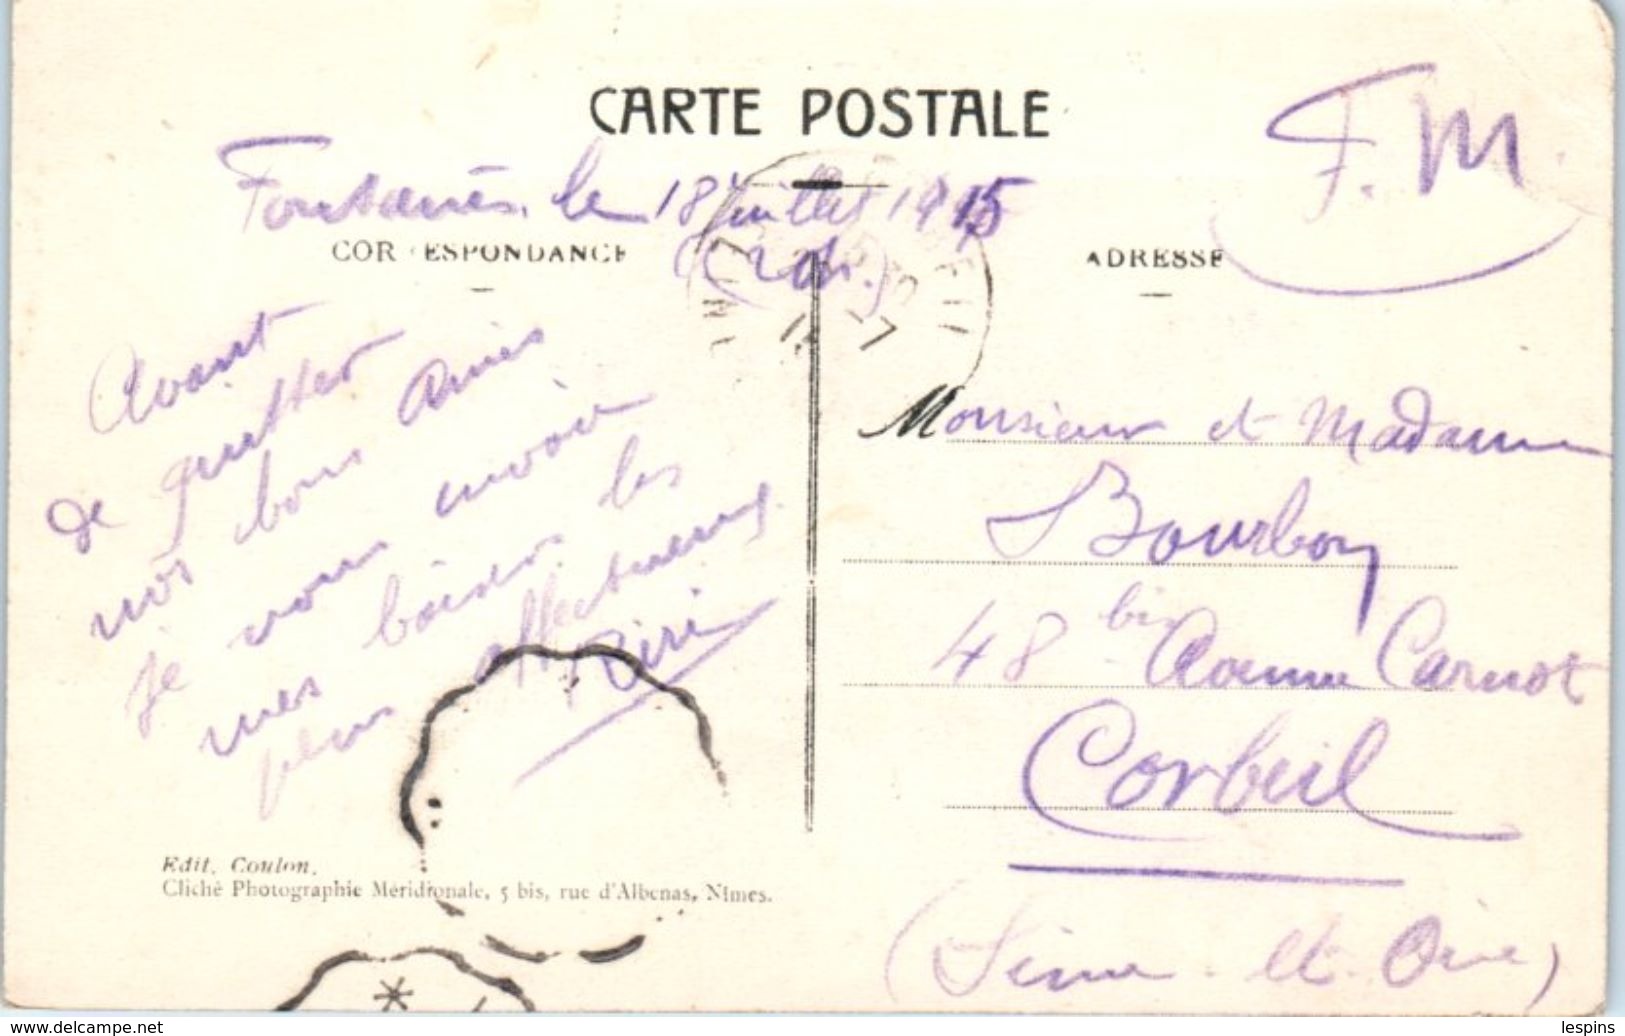 CARTE POSTALE
F.M.
Fontanès, le 18 juillet 1915
CORRESPONDANCE
ADRESSE
Avant
de quitter
nos bons amis
je vous envoie
mes baisers les
plus affectueux
Riri
Monsieur et Madame
Bourbon
48 bis Avenue Carnot
Corbeil
(Seine-et-Oise)
Edit. Coulon.
Cliché Photographie Méridionale, 5 bis, rue d'Albenas, Nîmes.
www.delcampe.net
lespins